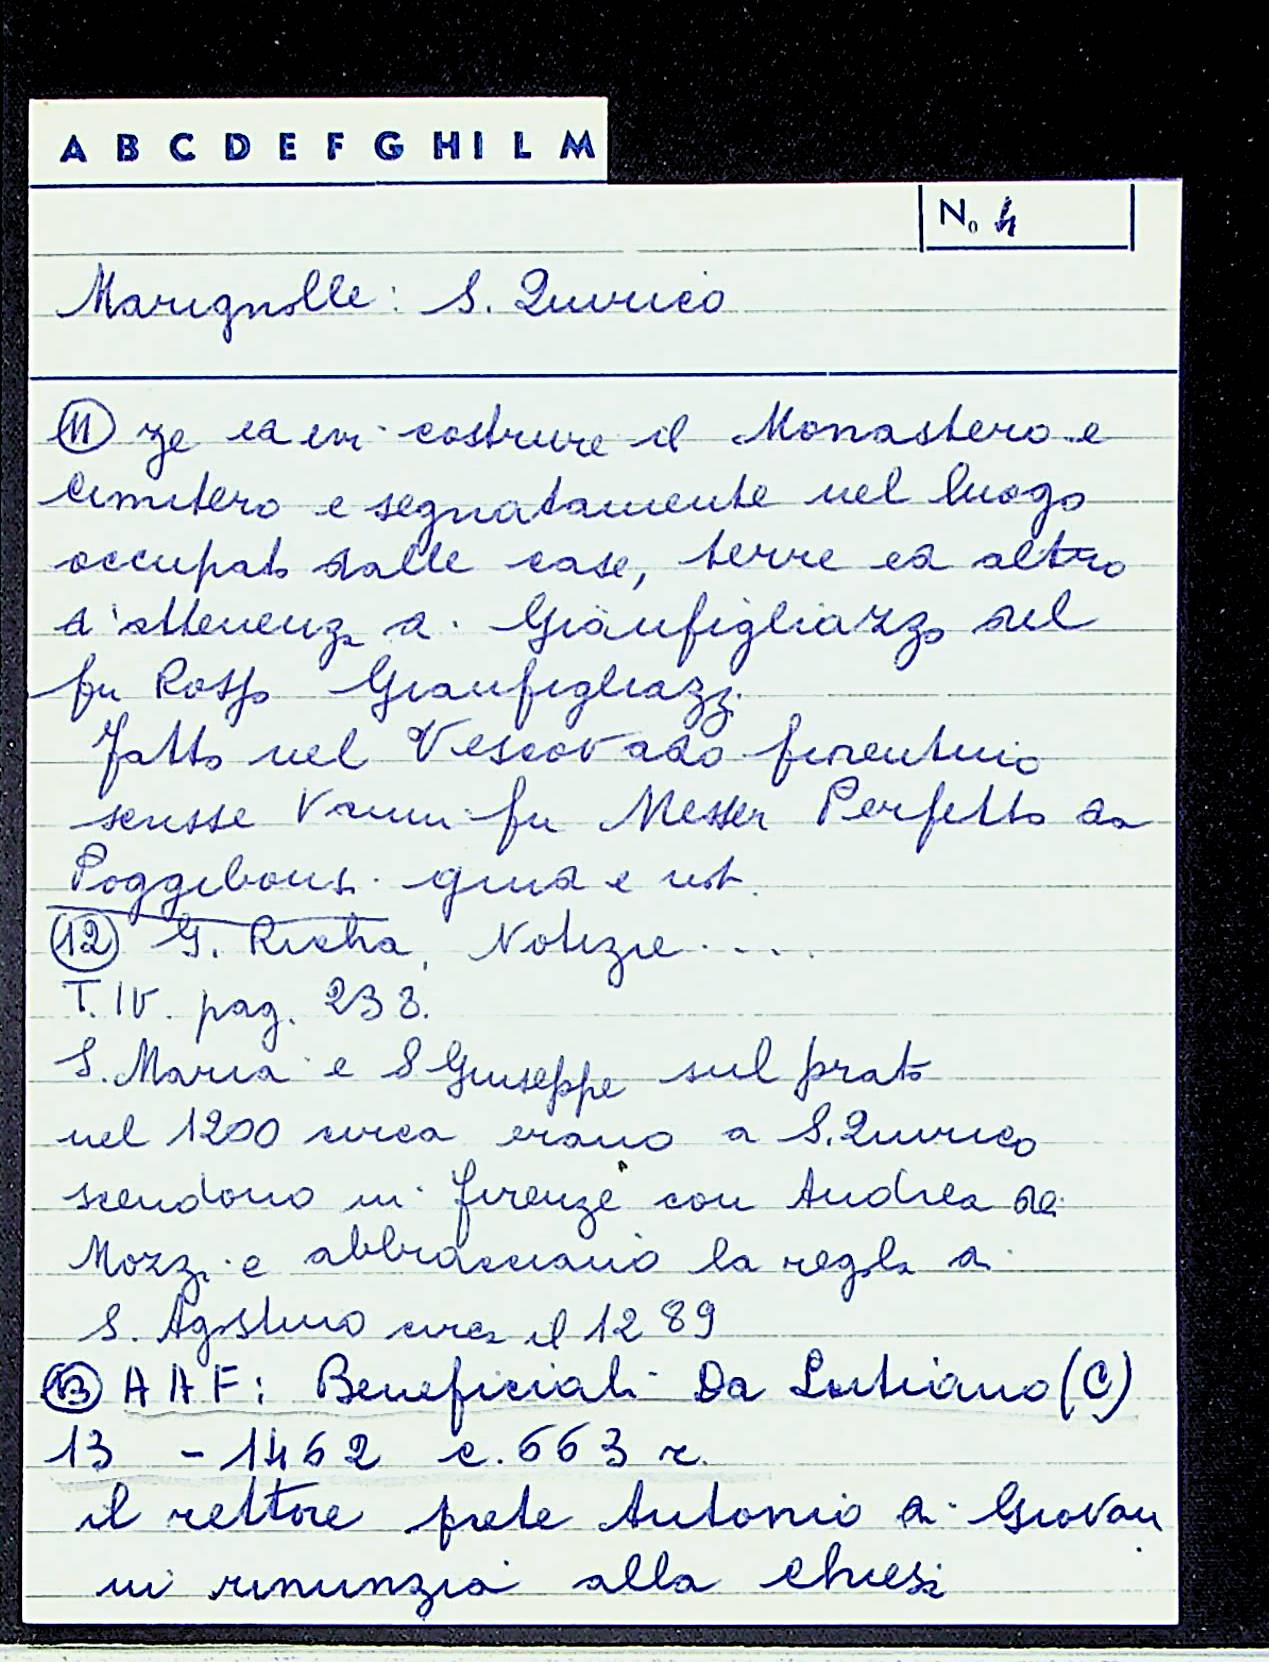 A B C D E F G H I L M
No 4
Marignolle: S. Quirico
11 ze ed ivi costruire il Monastero e
cimitero e segnatamente nel luogo
occupato dalle case, terre ed altro
d'attenenza di Gianfigliazzo del
fu Rosso Gianfigliazzi
Fatto nel Vescovado fiorentino
scrisse Vanni fu Messer Perfetto da
Poggibonsi giud e not.
12 G. Richa, Notizie ....
T. IV. pag. 233.
S. Maria e S Giuseppe sul prato
nel 1200 circa erano a S. Quirico
scendono in Firenze con Andrea de
Mozzi e abbracciano la regola di
S. Agostino circa il 1289
13 A A F: Beneficiali Da Lutiano (C)
13 - 1462 c. 663 r.
il rettore prete Antonio di Giovan
ni rinunzia alla chiesa